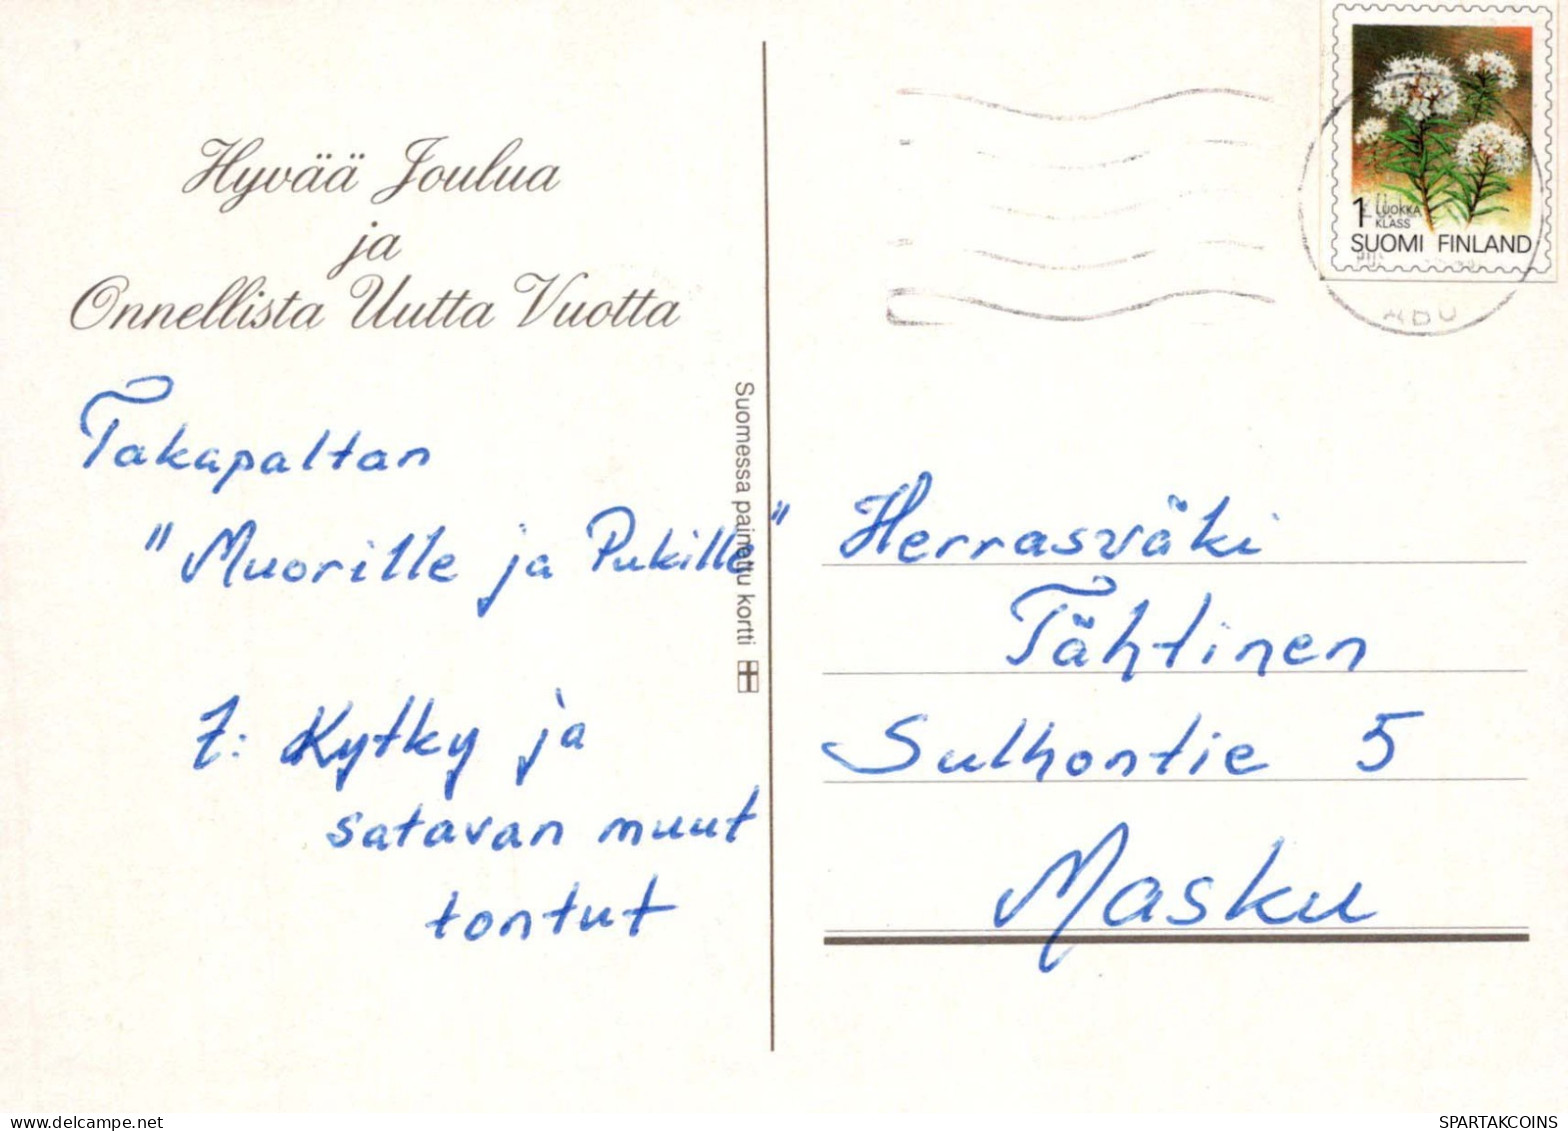 Hyvää Joulua
ja
Onnellista Uutta Vuotta
Takapaltan
"Muorille ja Pukille"
T: Kytky ja
satavan muut
tontut
Suomessa painettu kortti
1 LUOKKA
KLASS
SUOMI FINLAND
ABO
Herrasväki
Tähtinen
Sulhontie 5
Masku
delcampe.net
SPARTAKCOINS